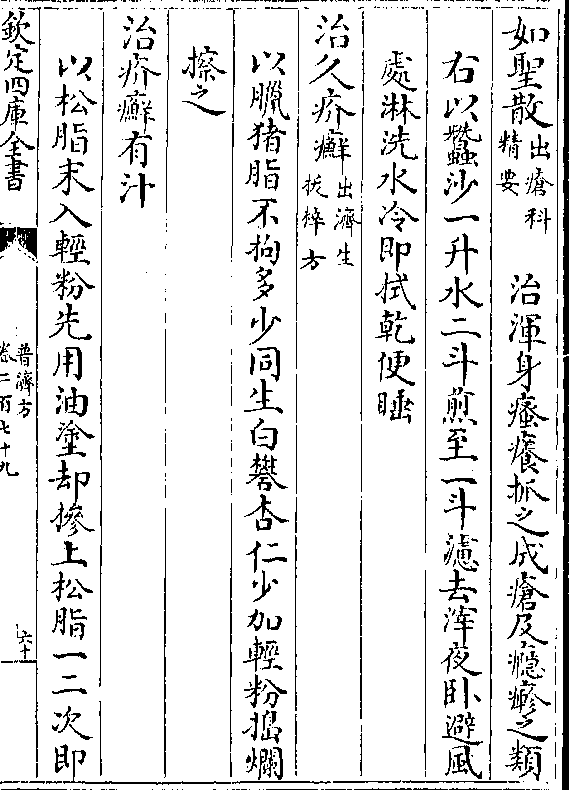 如聖散出瘡科精要　治渾身瘙癢抓之成瘡及癮疹之類
右以蠶沙一升水二斗煎至一斗濾去滓夜卧避風
處淋洗水冷即拭乾便睡
治久疥癬出濟生拔粹方
以臘猪脂不拘多少同生白礬杏仁少加輕粉搗爛
擦之
治疥癬有汁
以松脂末入輕粉先用油塗却摻上松脂一二次即
欽定四庫全書
普濟方
卷二百七十九
六十